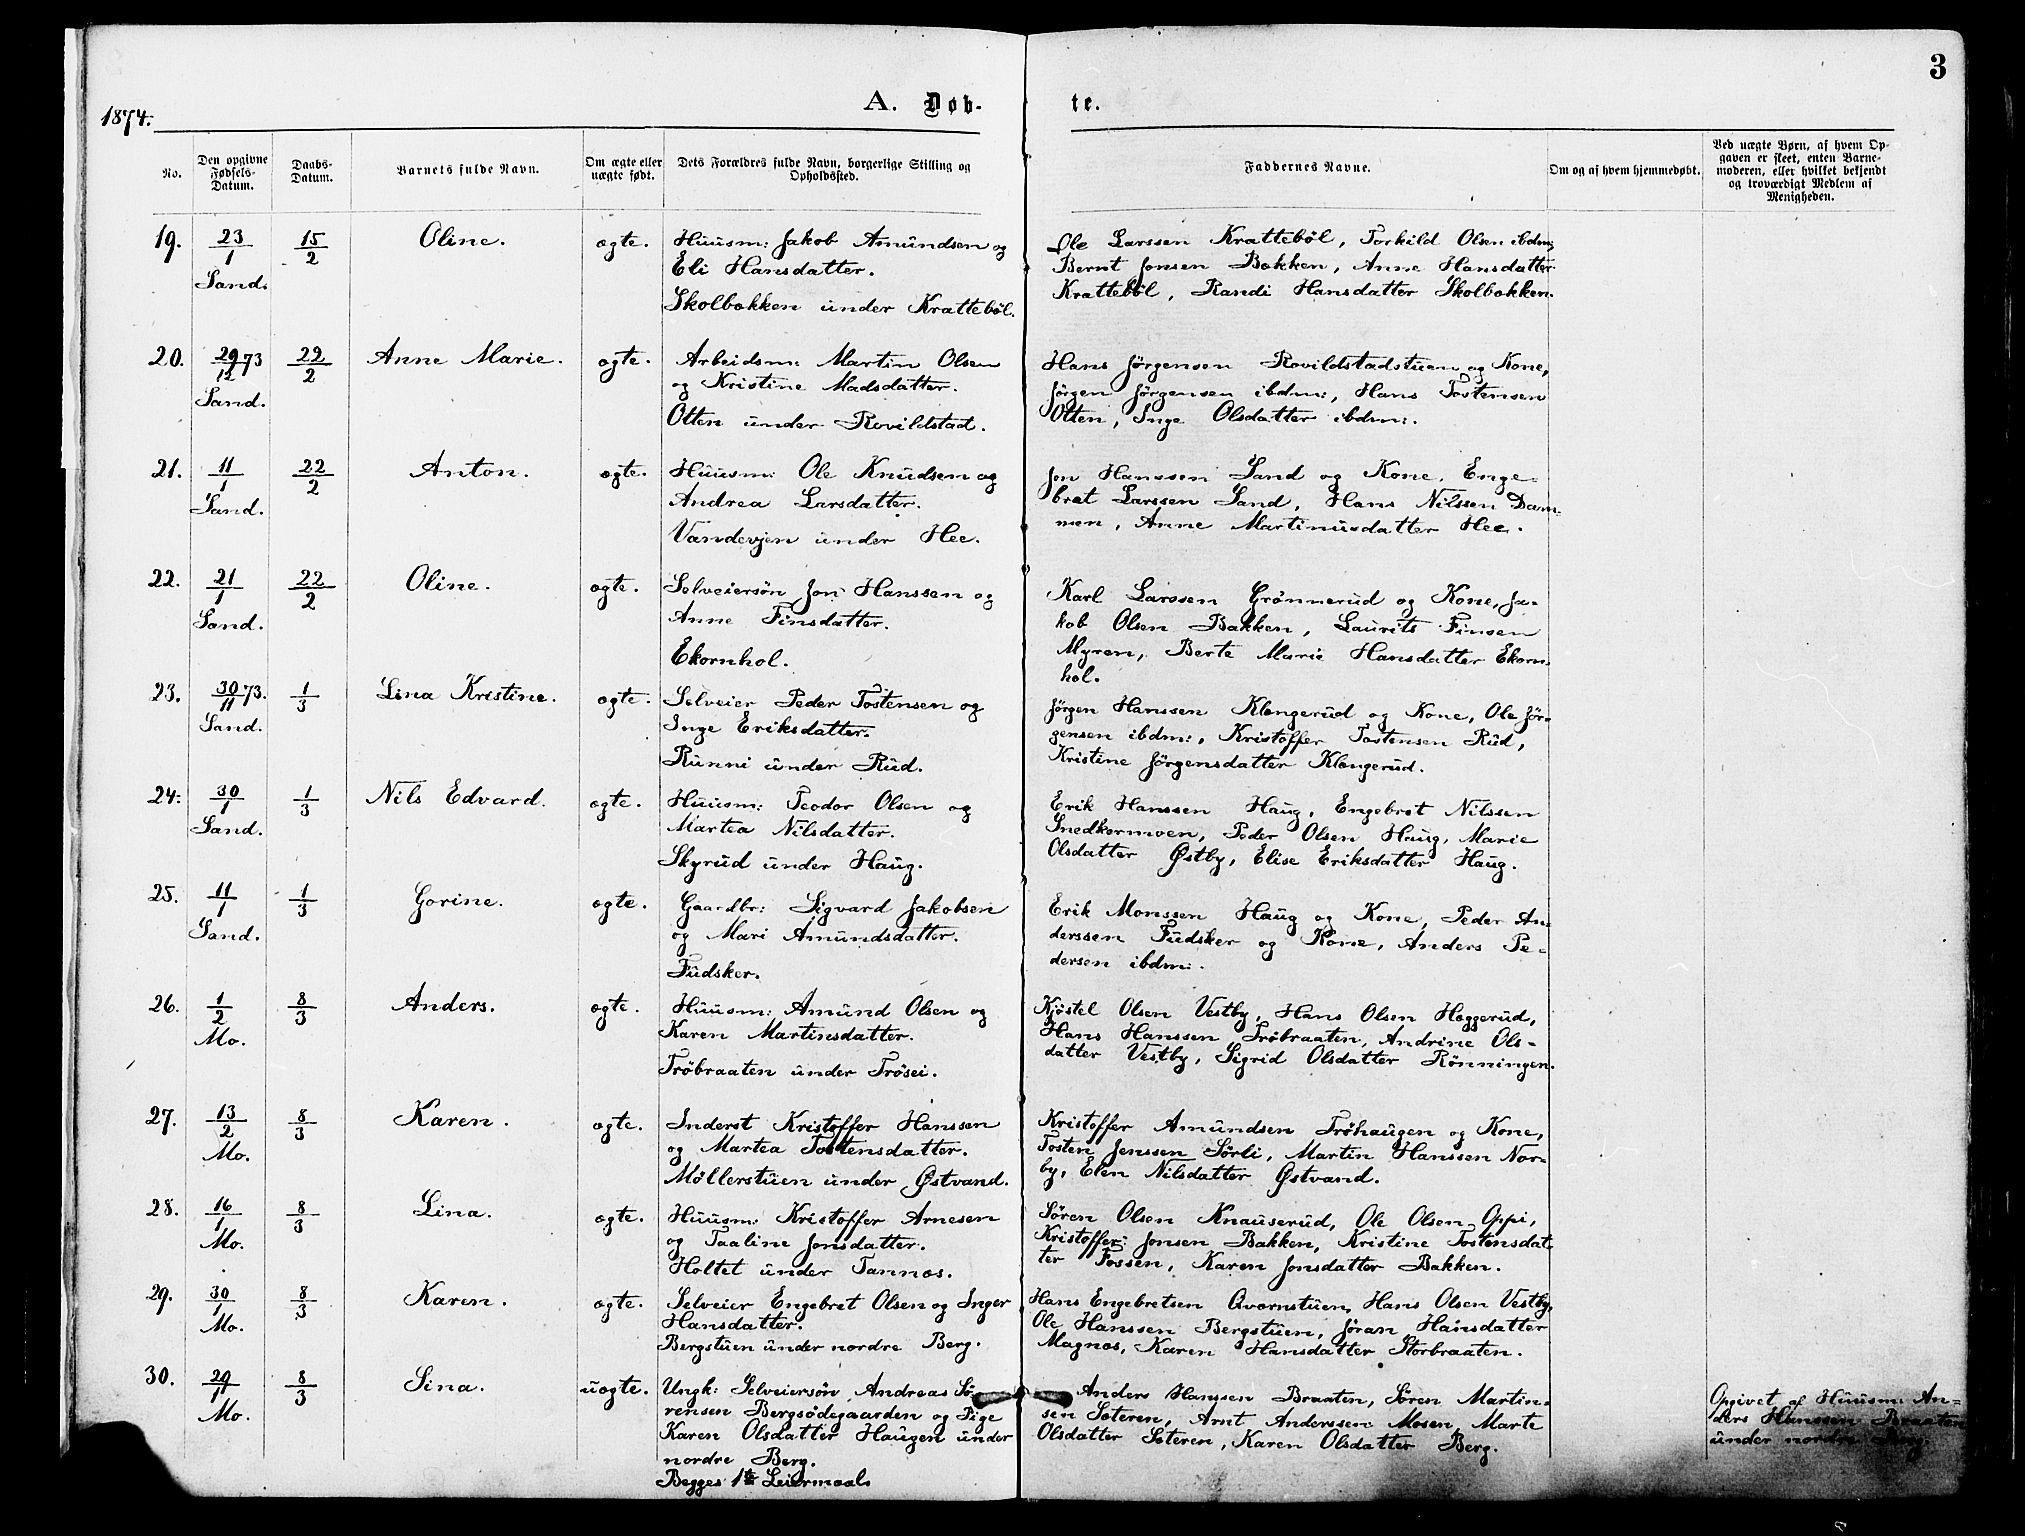 3
1874.
A. Døb-
te.
No.
Den opgivne
Fødsels-
Datum.
Daabs-
Datum.
Barnets fulde Navn.
Om ægte eller
uægte født.
Dets Forældres fulde Navn, borgerlige Stilling og
Opholdssted.
Faddernes Navne.
Om og af hvem hjemmedøbt.
Ved uægte Børn, af hvem Op-
gaven er skeet, enten Barne-
moderen, eller hvilket bekjendt
og troværdigt Medlem af
Menigheden.
19. 23/1 15/2 Oline. ægte. Huusm: Jakob Amundsen og
Sand. Eli Hansdatter.
Skolbækken under Krattebøl.
Ole Larssen Krattebøl, Torkild Olsen ibdm;
Bernt Jonsen Bækken, Anne Hansdatter
Krattebøl, Randi Hansdatter Skolbækken.
20. 29/12 73 22/2 Anne Marie. ægte. Arbeidsm: Martin Olsen
Sand. og Kristine Madsdatter.
Olten under Rovildstad.
Hans Jørgensen Rovildstadstuen og Kone,
Jørgen Jørgensen ibdm:, Hans Tostensen
Olten, Inge Olsdatter ibdm:.
21. 11/1 22/2 Anton. ægte. Huusm: Ole Knudsen og
Sand. Andrea Larsdatter.
Vandevjen under Hee.
Jon Hanssen Sand og Kone, Enge-
bret Larssen Sand, Hans Nilssen Dam-
men, Anne Martinusdatter Hee.
22. 21/1 22/2 Oline. ægte. Selveiersøn Jon Hanssen og
Sand. Anne Finsdatter.
Ekornhol.
Karl Larssen Grønnerud og Kone, Ja-
kob Olsen Bakken, Laurits Finsen
Myren, Berte Marie Hansdatter Ekorn-
hol.
23. 30/11 73. 1/3 Lina Kristine. ægte. Selveier Peder Tostensen og
Sand. Inge Eriksdatter.
Runni under Rud.
Jørgen Hanssen Klængerud og Kone, Ole Jør-
gensen ibdm:, Kristoffer Tostensen Rud,
Kristine Jørgensdatter Klængerud.
24. 30/1 1/3 Nils Edvard. ægte. Huusm: Teodor Olsen og
Sand. Martea Nilsdatter.
Skyrud under Haug.
Erik Hanssen Haug, Engebret Nilssen
Snedkermoen, Peder Olsen Haug, Marie
Olsdatter Østby, Elise Eriksdatter Haug.
25. 11/1 1/3 Gorine. ægte. Gaardbr: Sigvard Jakobsen
Sand. og Mari Amundsdatter.
Fudsker.
Erik Monssen Haug og Kone, Peder An-
derssen Fudsker og Kone, Anders Pe-
dersen ibdm:.
26. 1/2 8/3 Anders. ægte. Huusm: Amund Olsen og
Mo. Karen Martinsdatter.
Trøbraaten under Trøsei.
Kjøstel Olsen Vestby, Hans Olsen Heggerud,
Hans Hanssen Trøbraaten, Andrine Ols-
datter Vestby, Sigrid Olsdatter Rønningen.
27. 13/2 8/3 Karen. ægte. Inderst Kristoffer Hanssen
Mo. og Martea Tostensdatter.
Møllerstuen under Østvand.
Kristoffer Amundsen Trøhaugen og Kone,
Tosten Jenssen Sørli, Martin Hanssen Nor-
by, Elen Nilsdatter Østvand.
28. 16/1 8/3 Lina. ægte. Huusm: Kristoffer Arnesen
Mo. og Taaline Jonsdatter.
Holtet under Tannæs.
Søren Olsen Knauserud, Ole Olsen Oppi,
Kristoffer Jonsen Bakken, Kristine Tostensdat-
ter Fossen, Karen Jonsdatter Bakken.
29. 30/1 8/3 Karen. ægte. Selveier Engebret Olsen og Inger
Mo. Hansdatter.
Bergstuen under nordre Berg.
Hans Engebretsen Qværnstuen, Hans Olsen Vestby,
Ole Hanssen Bergstuen, Jøran Hansdatter
Magnæs, Karen Hansdatter Storbraaten.
30. 29/1 8/3 Sina. uægte. Ungk: Selveiersøn Andreas Sø-
Mo. rensen Bergsødegaarden og Pige
Karen Olsdatter Haugen under
nordre Berg.
Begges 1ste Leiermaal
Anders Hanssen Braaten, Søren Martin-
sen Sæteren, Arnt Anderssen Mosen, Marte
Olsdatter Sæteren, Karen Olsdatter Berg.
Opgivet af Huusm: An-
ders Hanssen Braaten
under nordre Berg.